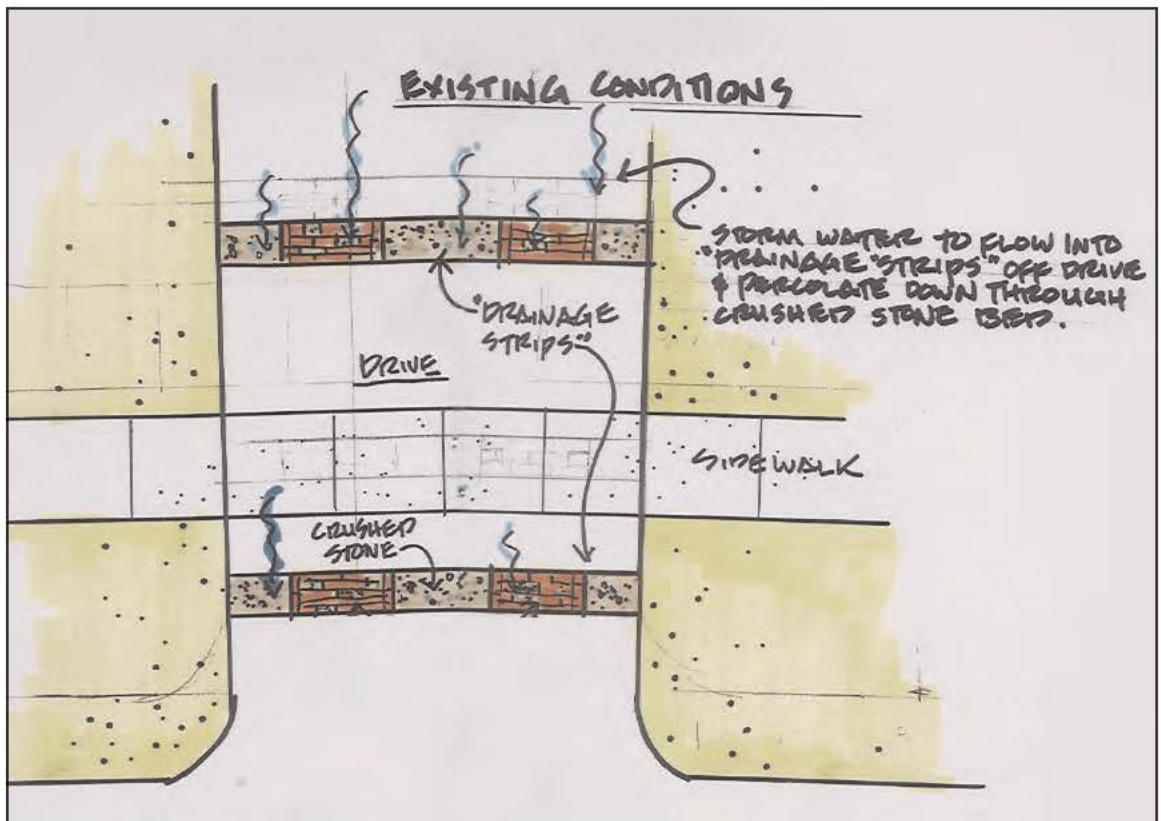 EXISTING CONDITIONS
STORM WATER TO FLOW INTO
"DRAINAGE "STRIPS" OFF DRIVE
& PERCOLATE DOWN THROUGH
CRUSHED STONE BED.
"DRAINAGE
STRIPS"
DRIVE
SIDEWALK
CRUSHED
STONE